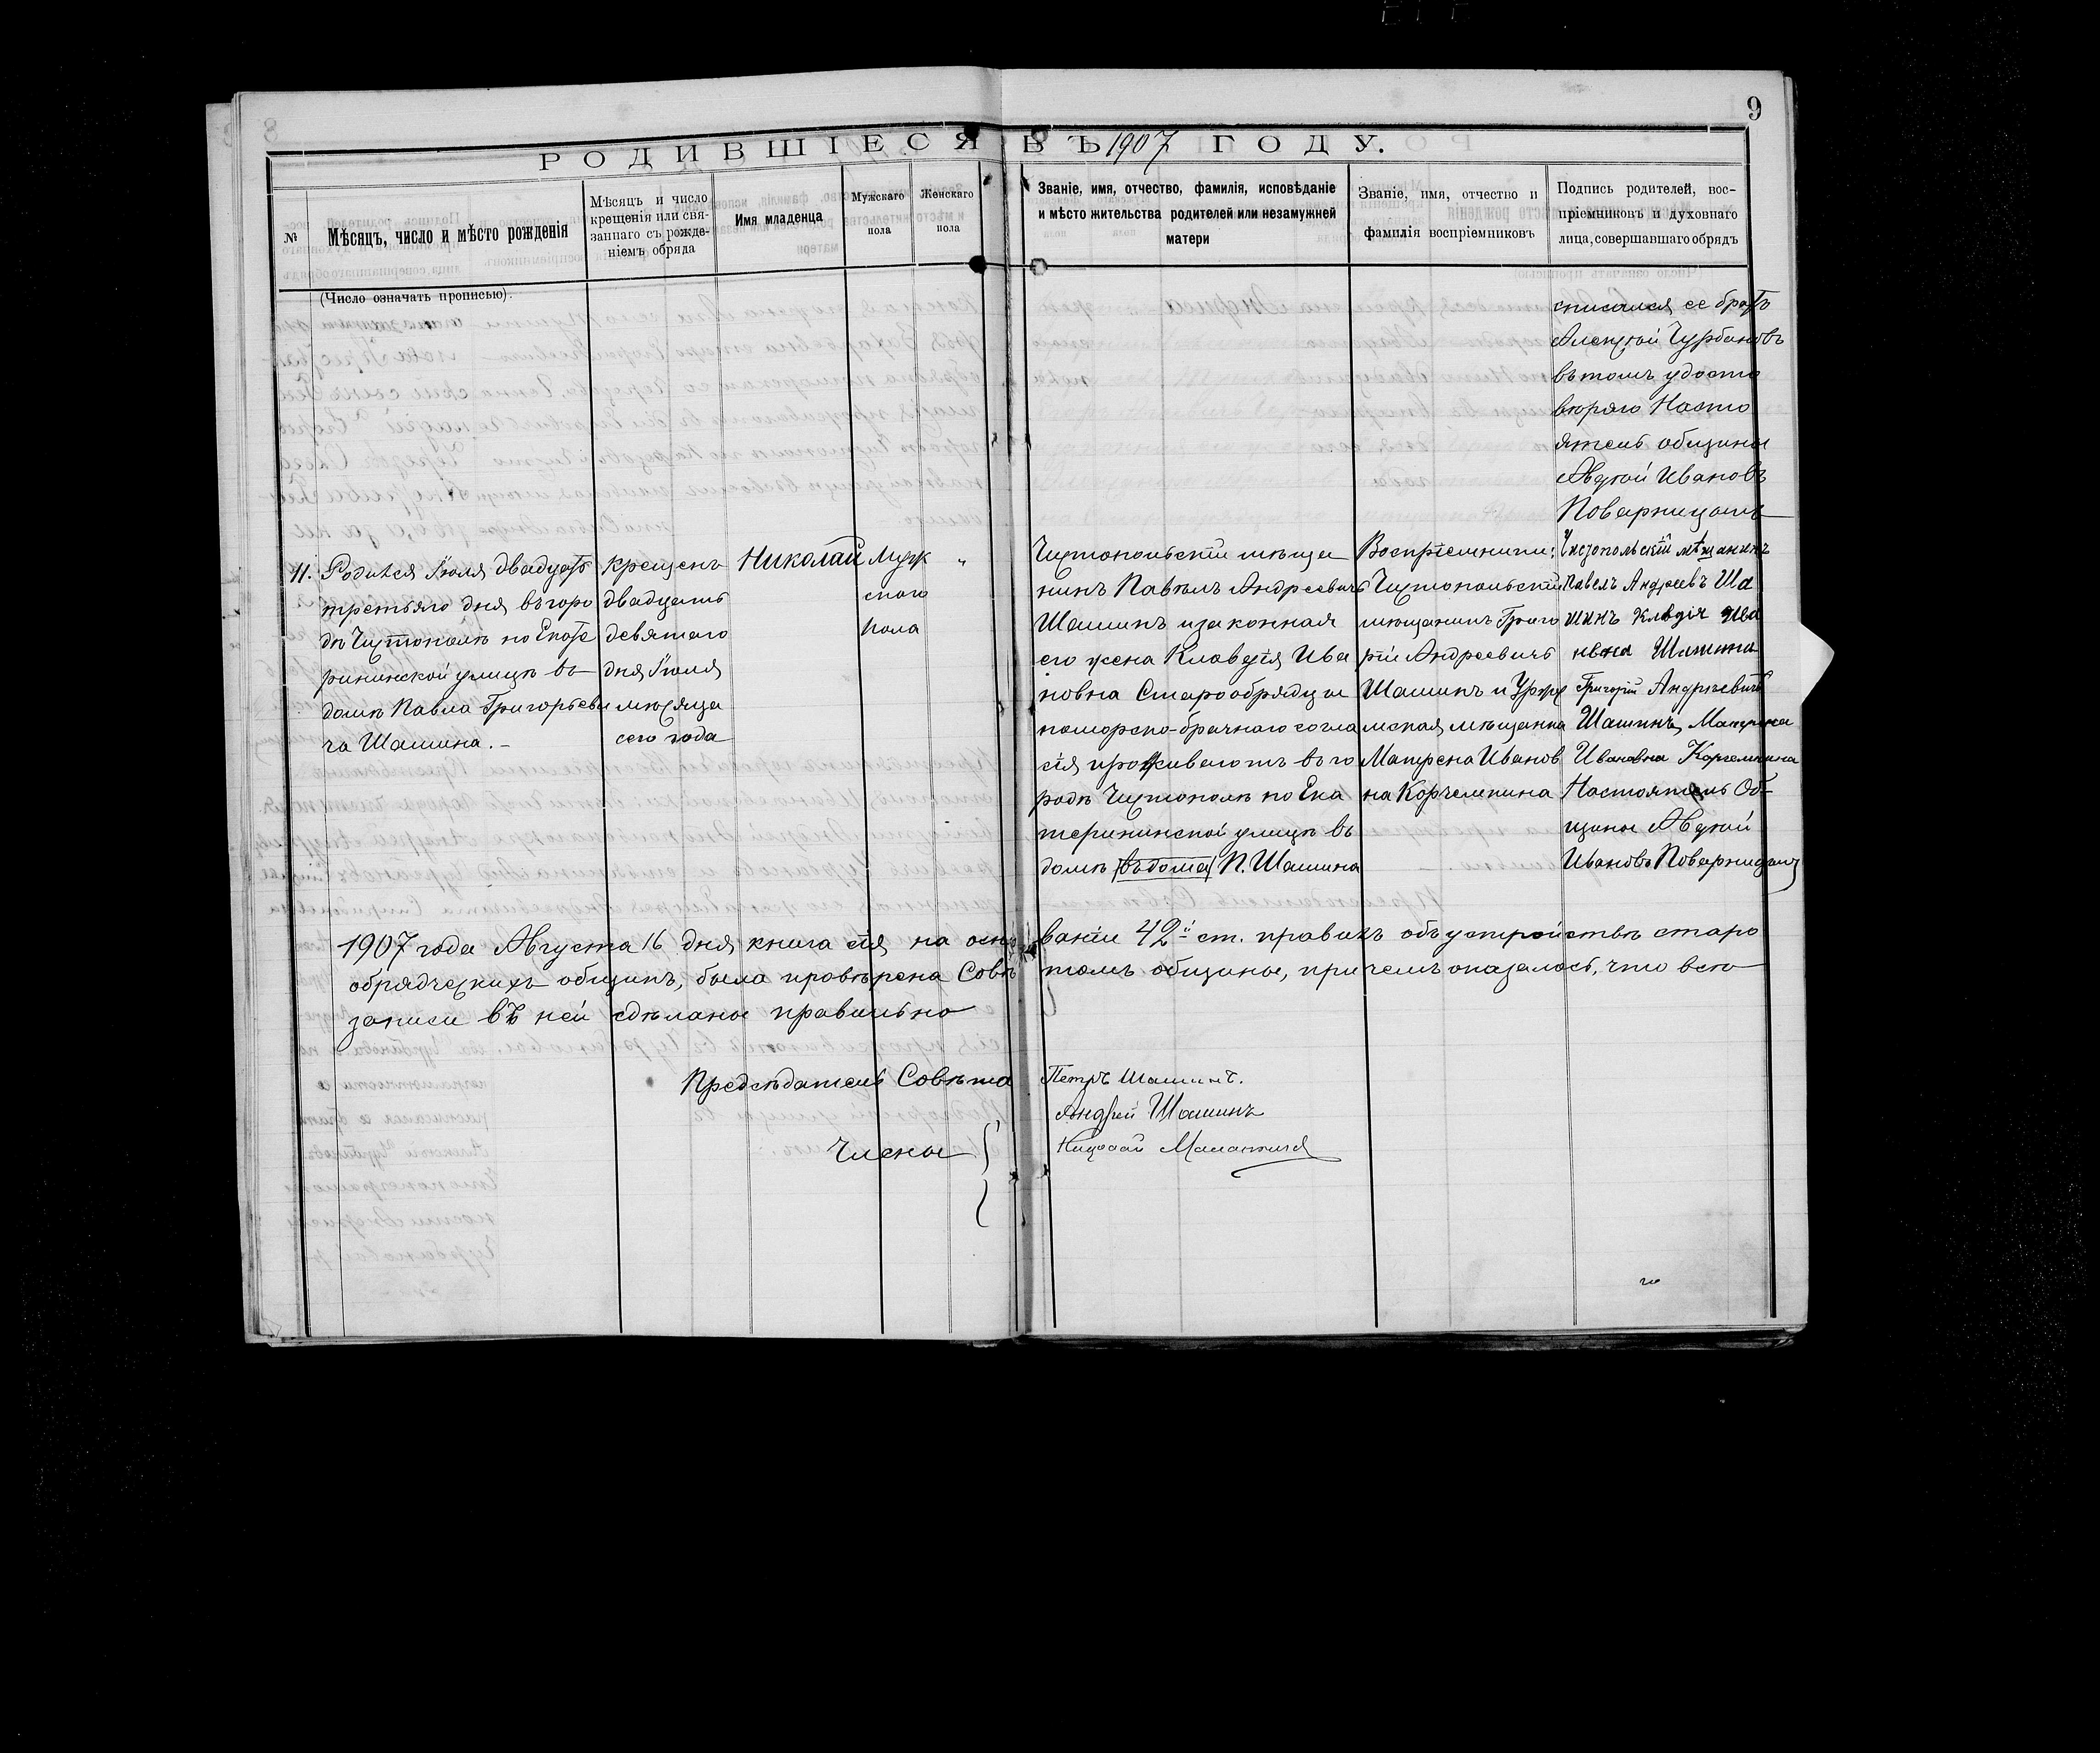 9
РОДИВШІЕСЯ ВЪ 1907 ГОДУ.
№
Мѣсяцъ, число и мѣсто рожденія
Мѣсяцъ и число
крещенія или свя-
заннаго съ рожде-
ніемъ обряда
Имя младенца
Мужскаго
пола
Женскаго
пола
Званіе, имя, отчество, фамилія, исповѣданіе
и мѣсто жительства родителей или незамужней
матери
Званіе, имя, отчество и
фамилія воспріемниковъ
Подпись родителей, вос-
пріемниковъ и духовнаго
лица, совершавшаго обрядъ
(Число означать прописью).
списался ее братъ
Алексѣй Чурбановъ
въ томъ удосто
веряю Насто
ятель общины
Авдей Ивановъ
Поварницынъ
11.
Родился Іюля двадцать
третьяго дня въ горо
дѣ Чистополѣ по Екате
рининской улицѣ въ
домѣ Павла Григорьеви
ча Шашина. –
крещенъ
двадцать
девятаго
дня Іюля
мѣсяца
сего года
Николай
Муж
скаго
пола
"
Чистопольскій мѣща
нинъ Павелъ Андреевичъ
Шашинъ и законная
его жена Клавдія Ива
новна Старообрядцы
поморско-брачнаго согла
сія проживаютъ въ го
родѣ Чистополѣ по Ека
терининской улицѣ въ
домѣ (въ дома) П. Шашина
Воспріемники:
Чистопольскій
мѣщанинъ Григо
рій Андреевичъ
Шашинъ и Уржу
мская мѣщанка
Матрена Иванов
на Корчемкина
Чистопольскій мѣщанинъ
Павелъ Андреевъ Ша
шинъ Клвдія Ива
нвна Шашина
Григорій Андреевичъ
Шашинъ, Матрена
Ивановна Корчемкина
Настоятель Об-
щины Авдей
Ивановъ Поварницынъ
1907 года Августа 16 дня книга сія на осно ваніи 42й ст. правилъ объ устройствѣ старо
обрядческихъ общинъ, была провѣрена Совѣ томъ общины, причемъ оказалось, что всѣ
записи въ ней сдѣланы правильно
Предсѣдатель Совѣта Петръ Шашинъ.
Андрей Шашинъ
Члены
Николай